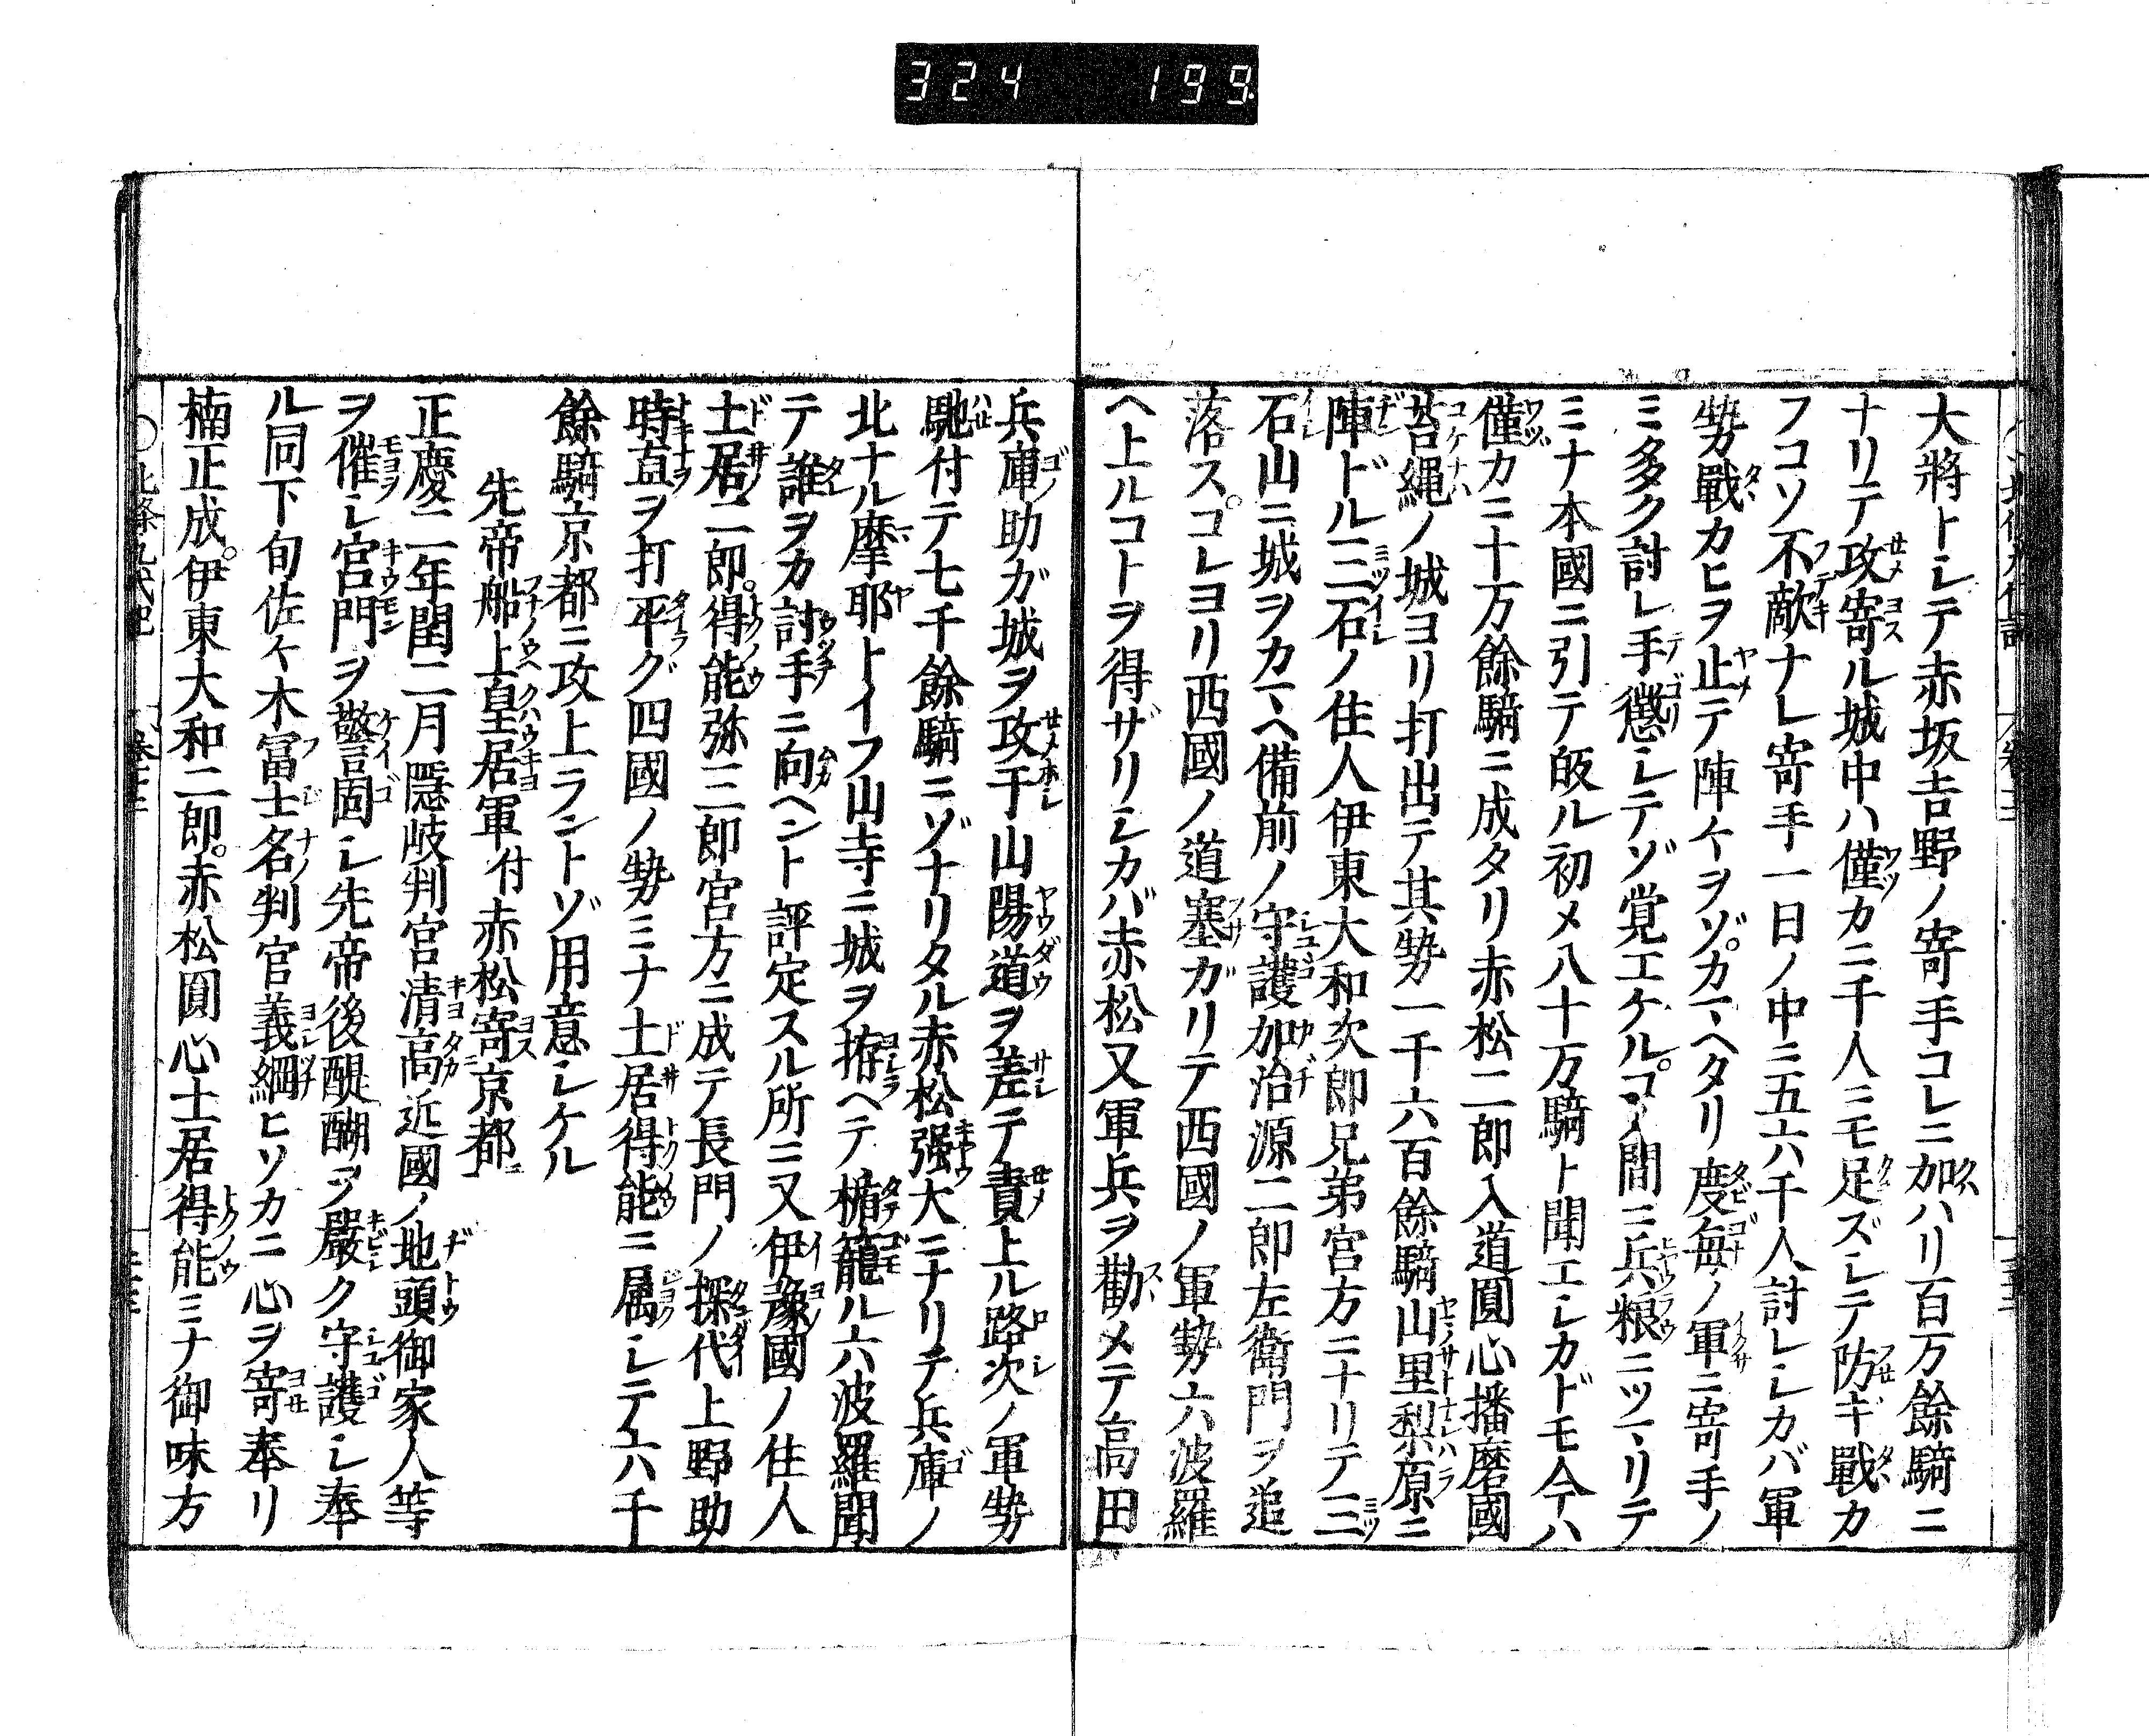 324 199
大將トシテ赤坂吉野ノ寄手コレニ加ハリ百万餘騎ニ
ナリテ攻寄ル城中ハ僅カニ千人ニモ足ズシテ防ギ戰カ
フコソ不敵ナレ寄手一日ノ中ニ五六千人討レシカバ軍
勢戰カヒヲ止テ陣ケヲゾカマヘタリ度毎ノ軍ニ寄手ノ
ミ多ク討レ手懲シテゾ覚エケルコノ間ニ兵粮ニツマリテ
ミナ本國ニ引テ皈ル初メ八十万騎ト聞エシカドモ今ハ
僅カニ十万餘騎ニ成タリ赤松二郎入道圓心播磨國
苔縄ノ城ヨリ打出テ其勢一千六百餘騎山里梨原ニ
陣ドル三石ノ住人伊東大和次郎兄弟宮方ニナリテ三
石山ニ城ヲカマヘ備前ノ守護加治源二郎左衛門ヲ追
落ス。コレヨリ西國ノ道塞ガリテ西國ノ軍勢六波羅
ヘ上ルコトヲ得ザリシカバ赤松又軍兵ヲ勸メテ高田
兵庫助ガ城ヲ攻干山陽道ヲ差テ責上ル路次ノ軍勢
馳付テ七千餘騎ニゾナリタル赤松强大ニナリテ兵庫ノ
北ナル摩耶トイフ山寺ニ城ヲ拵ヘテ楯籠ル六波羅聞
テ誰ヲカ討手ニ向ヘント評定スル所ニ又伊豫國ノ住人
土居二郎。得能弥三郎宮方ニ成テ長門ノ探代上野助
時直ヲ打平グ四國ノ勢ミナ土居得能ニ属シテ六千
餘騎京都ニ攻上ラントゾ用意シケル
先帝船上皇居軍付赤松寄京都
正慶二年閏二月隠岐判官清高近國ノ地頭御家人等
ヲ催シ宮門ヲ警固シ先帝後醍醐ヲ嚴ク守護シ奉
ル同下旬佐々木冨士名判官義綱ヒソカニ心ヲ寄奉リ
楠正成。伊東大和二郎。赤松圓心土居得能ミナ御味方
北條九代記